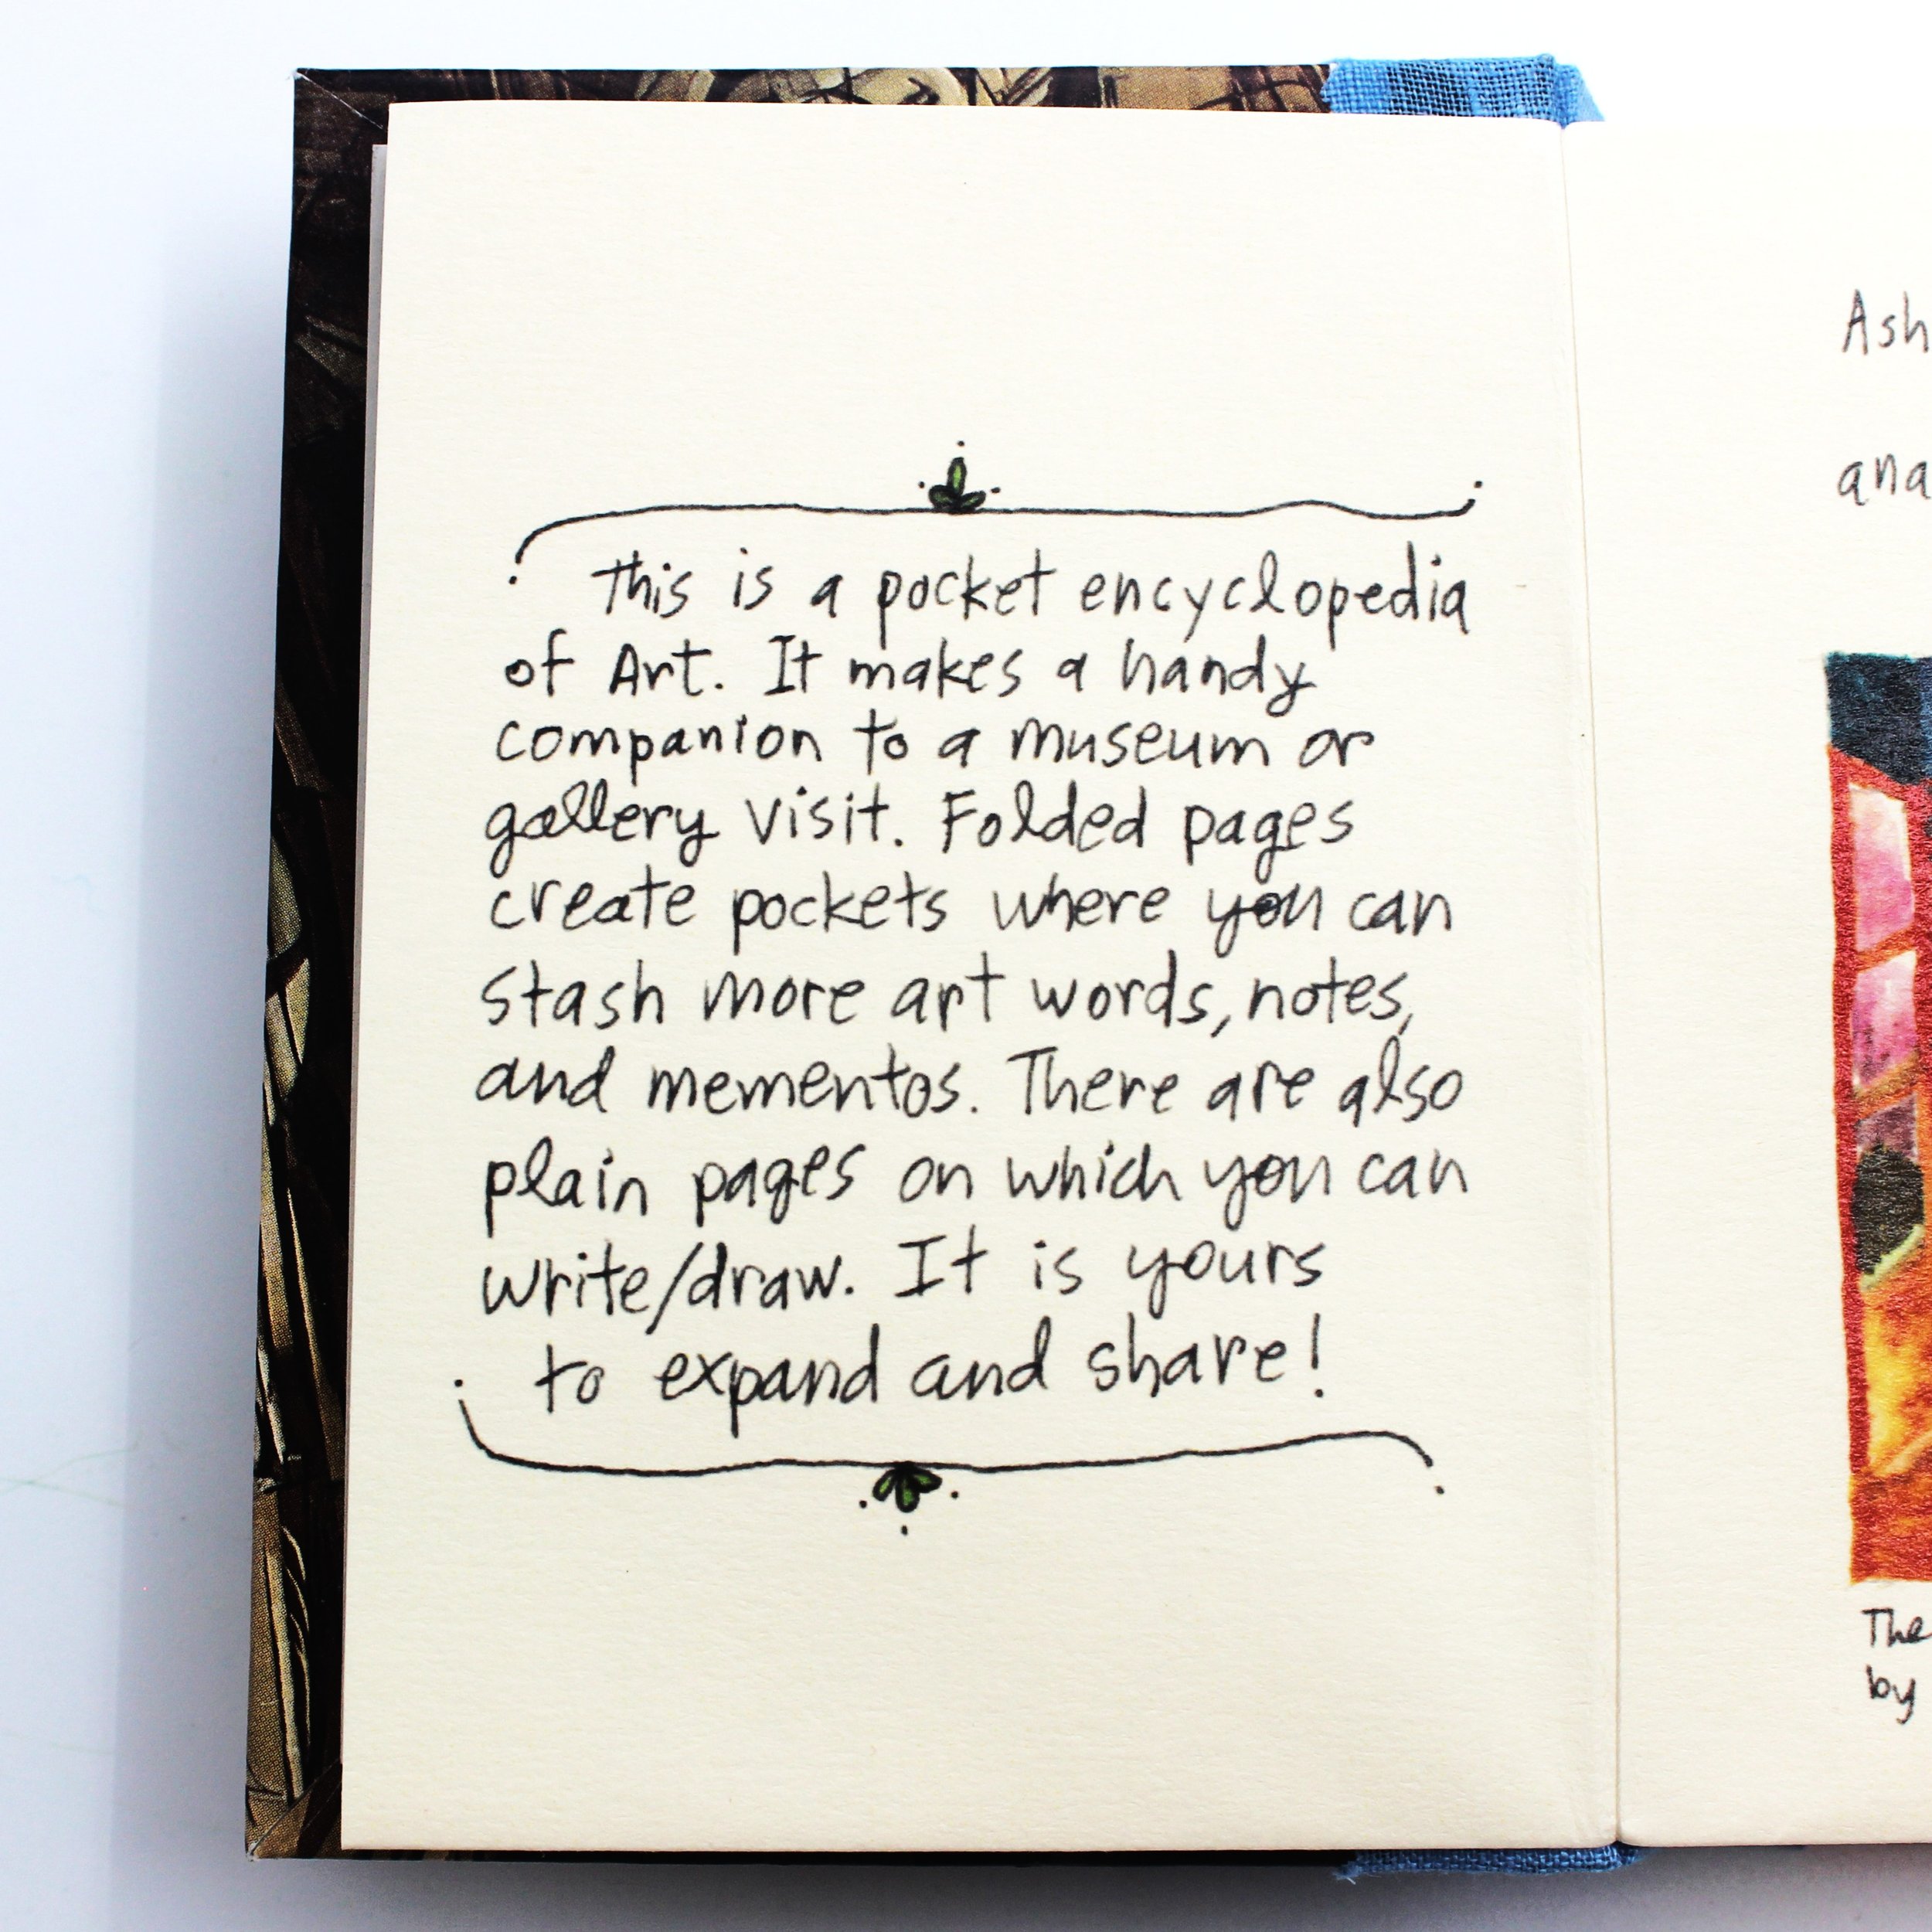 This is a pocket encyclopedia
of Art. It makes a handy
companion to a museum or
gallery visit. Folded pages
create pockets where you can
stash more art words, notes,
and mementos. There are also
plain pages on which you can
write/draw. It is yours
to expand and share!
Ash
ana
The
by